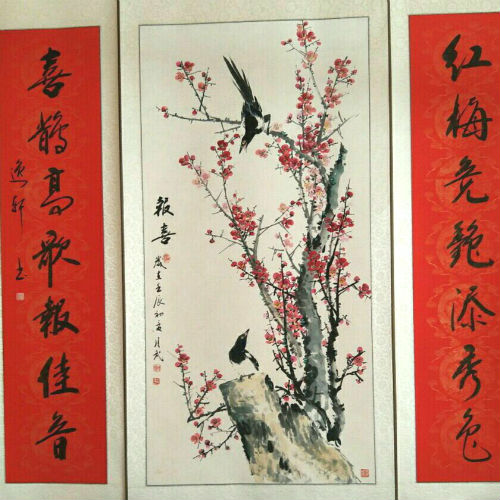 红梅竞艳添秀色
報喜
歲在壬辰初夏月武
喜鹊高歌報佳音
逸轩书